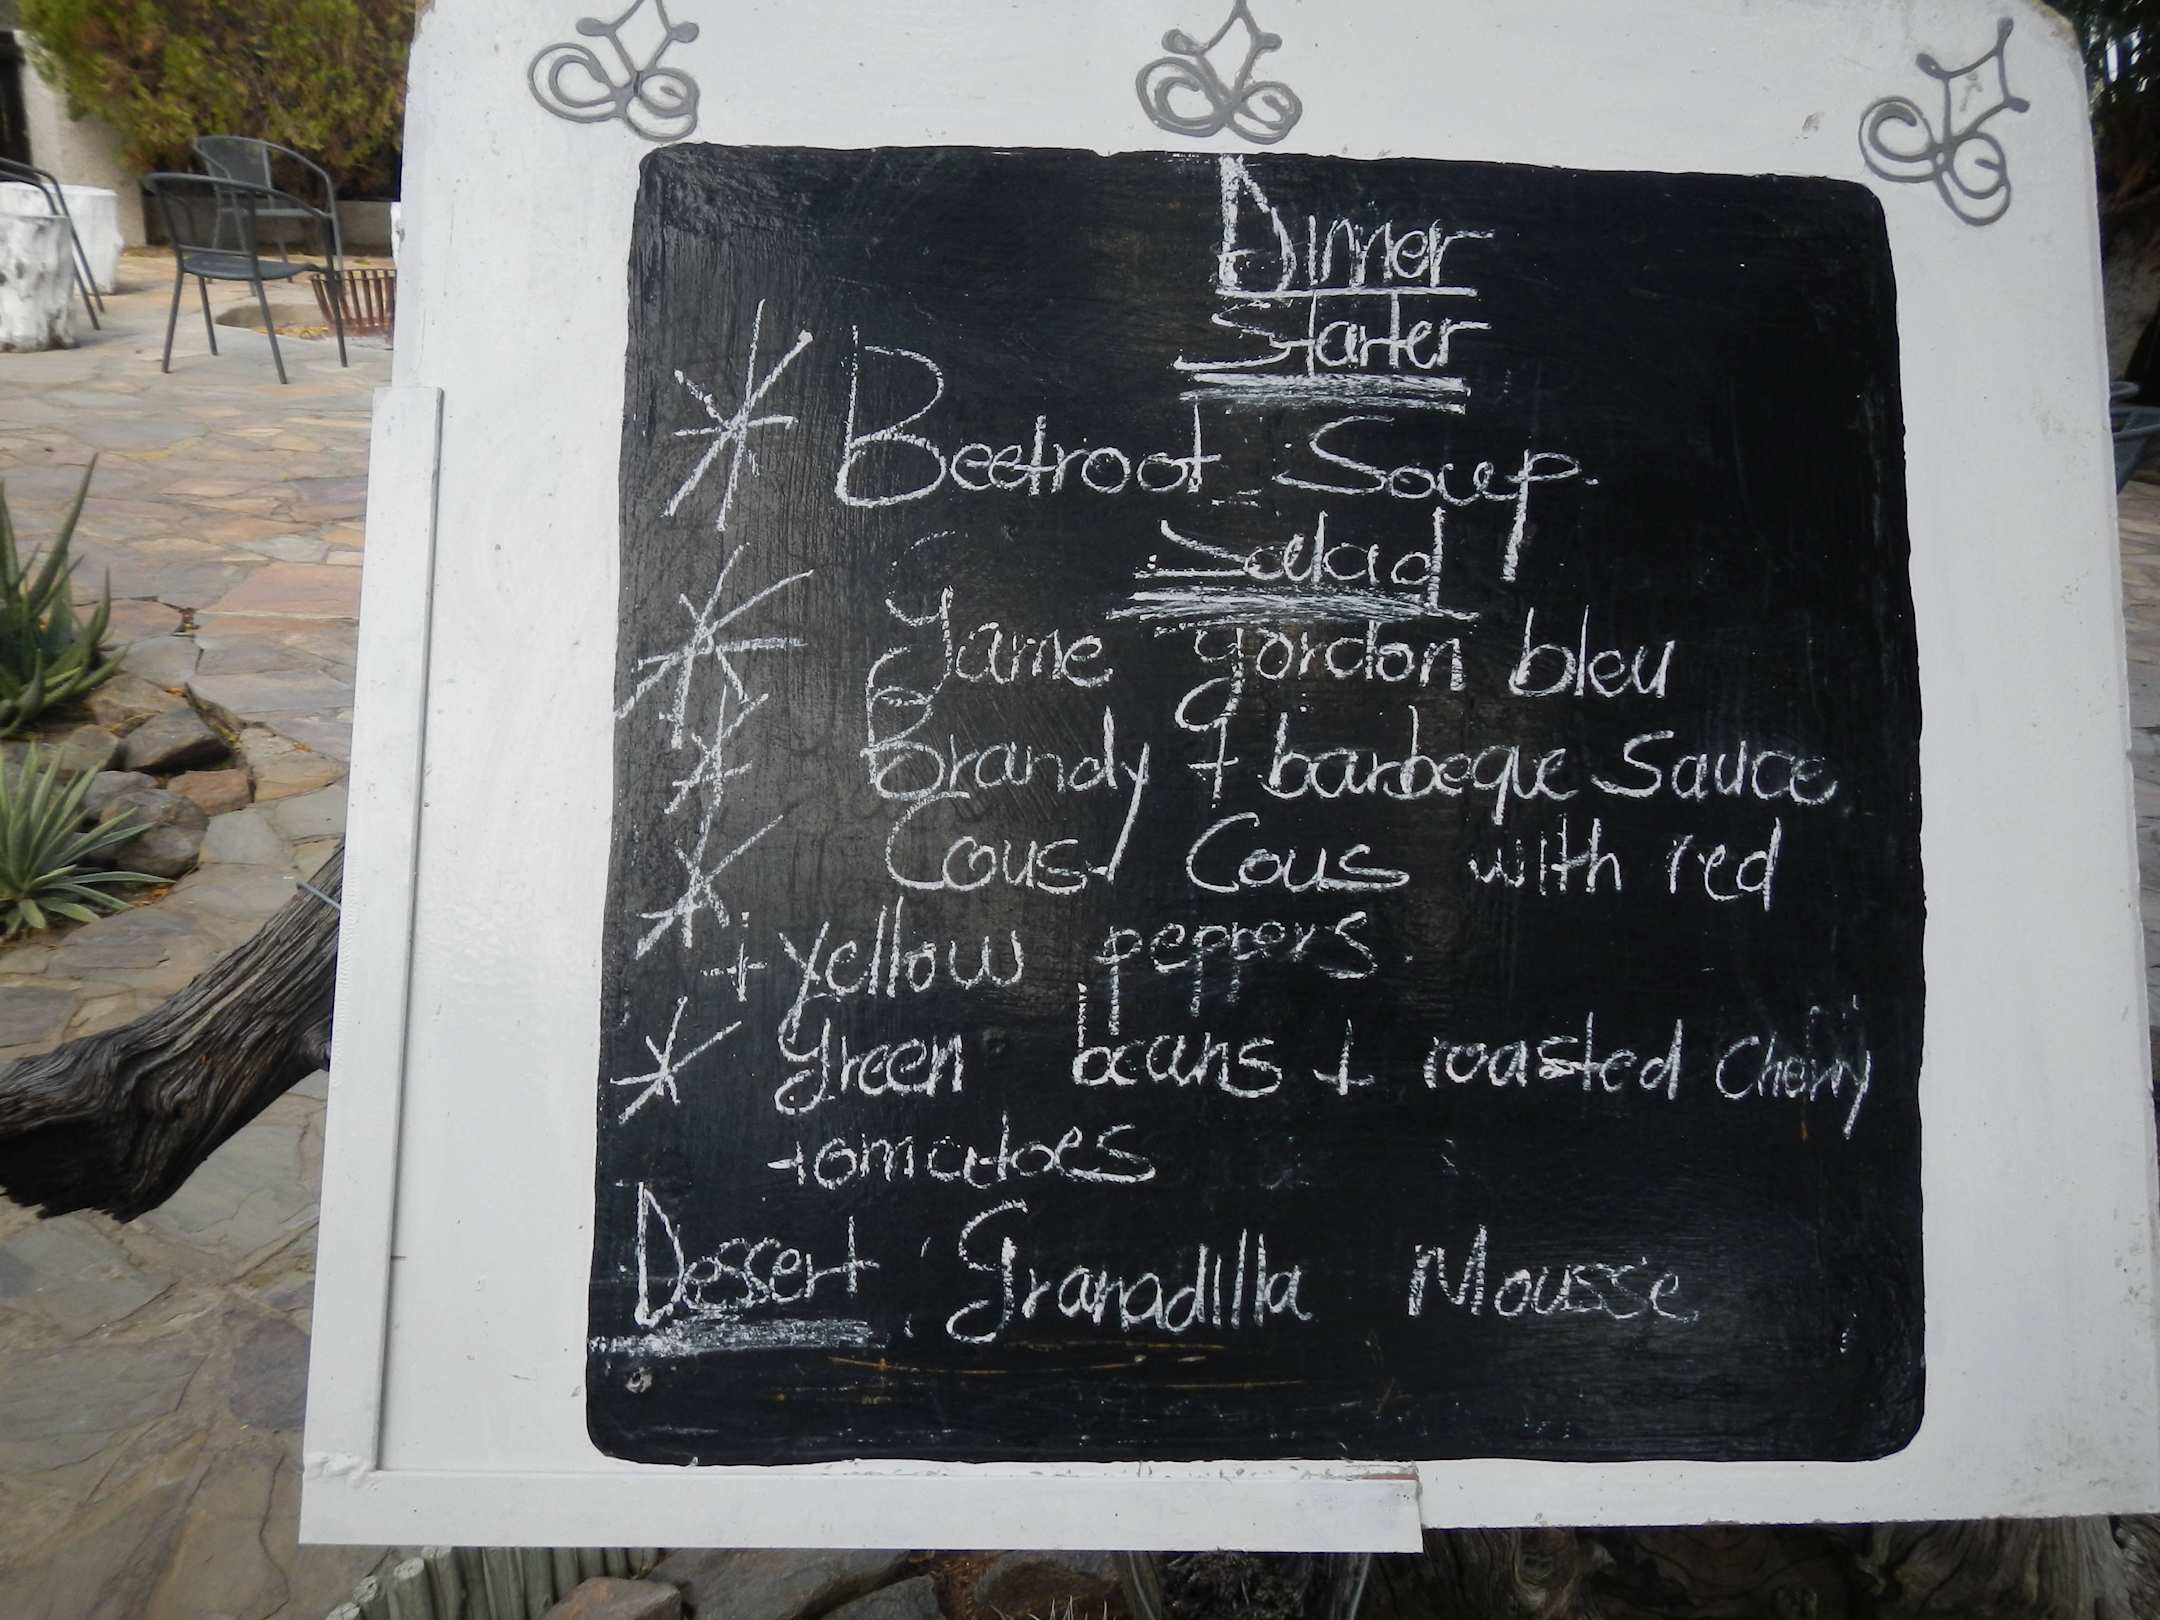 Dinner
Starter
* Beetroot Soup.
Salad
* Game gordon bleu
* Brandy + barbeque Sauce
* Cous Cous with red
+ yellow peppers.
* green beans + roasted Cherry
tomatoes
Dessert: Granadilla Mousse